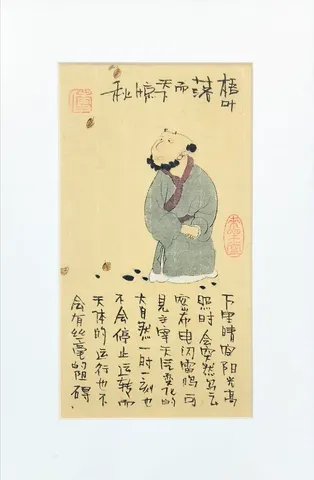 梧叶落而天惊秋
万里晴空阳光高
照时会突然乌云
密布电闪雷鸣可
见宇宙天变化的
大自然一时一刻也
不会停止运转而
天体的运行也不
会有丝毫的阻碍.